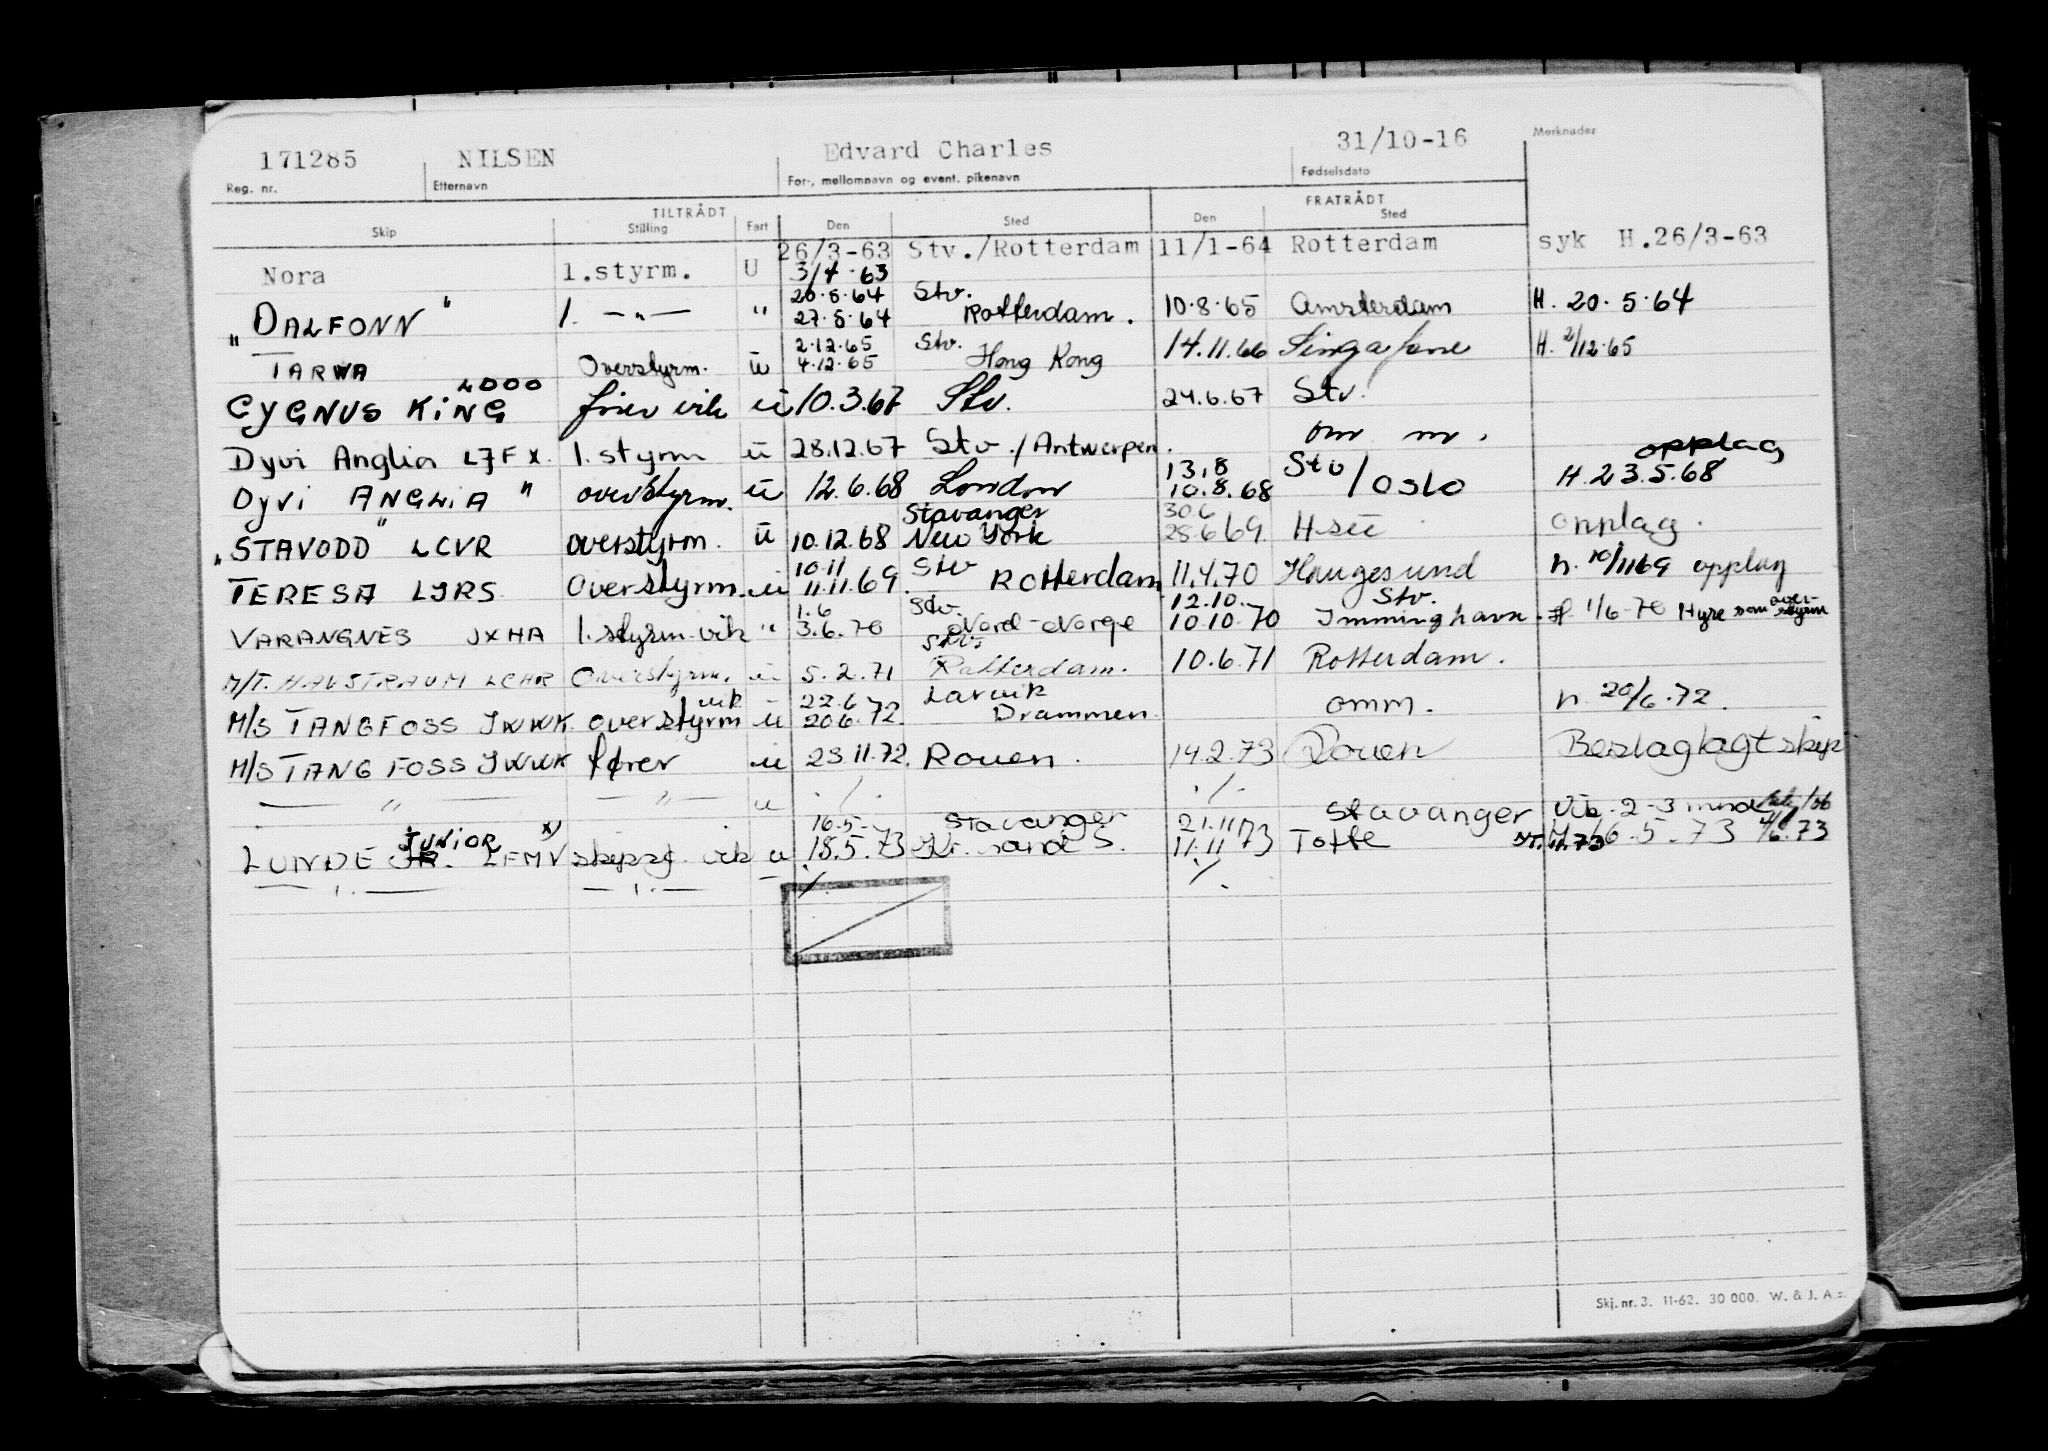 171285 NILSEN Edvard Charles 31/10-16 Merknader
Reg. nr. Etternavn For-, mellomnavn og event. pikenavn Fødselsdato
TILTRÅDT FRATRÅDT
Skip Stilling Fart Den Sted Den Sted
26/3-63 Stv./Rotterdam 11/1-64 Rotterdam syk H.26/3-63
Nora 1.styrm. U 3/4.63
20.5.64 Stv.
"DALFONN" 1. —"— " 27.5.64 Rotterdam. 10.8.65 Amsterdam H. 20.5.64
2.12.65 Stv.
TARWA Overstyrm. ü 4.12.65 Hong Kong 14.11.66 Singapore H. 2/12.65
LDOO
CYGNUS KING fører vik ü 10.3.67 Stv. 24.6.67 Stv.
Dyvi Anglia LJFX. 1. styrm ü 28.12.67 Stv./Antwerpen. om m. opplag
13.8 Stv
Dyvi ANGLIA " overstyrm. ü 12.6.68 London 10.8.68 /Oslo H.23.5.68
Stavanger 30.6
"STAVODD" LCVR overstyrm. ü 10.12.68 New York 28.6.69. H.see opplag.
10.11 Stv
TERESA LJRS Overstyrm. ü 11.11.69. Rotterdam 11.4.70 Haugesund h. 10/11 69 opplag
1.6 Stv. 12.10. Stv. over-
VARANGNES JXHA 1.styrm vik " 3.6.70 Nord-Norge 10.10.70 Immingham. H. 1/6-70 Hyre som styrm
Stv.
M/T. HAUSTRAUM LCHR Overstyrm. ü 5.2.71 Rotterdam. 10.6.71 Rotterdam.
vik 22.6 Larvik
M/S TANGFOSS JWWK overstyrm ü 20.6.72. Drammen. omm. h. 20/6.72.
M/S TANGFOSS JWWK fører ü 23.11.72. Rouen. 14.2.73 Rouen Beslaglagt skip
— " — — " — u ./. ./.
16.5. Stavanger 21.11 Stavanger Vik. 2-3 mnd
JUNIOR x)
LUNDE JR. LFMV skipsf. vik u 18.5.73 Kr.sand S. 11.11 73 Tofte 16.5.73 4/6.73
— ı. — — ı. — — ./. ./.
Skj. nr. 3. 11-62. 30 000. W. & J. A.s.